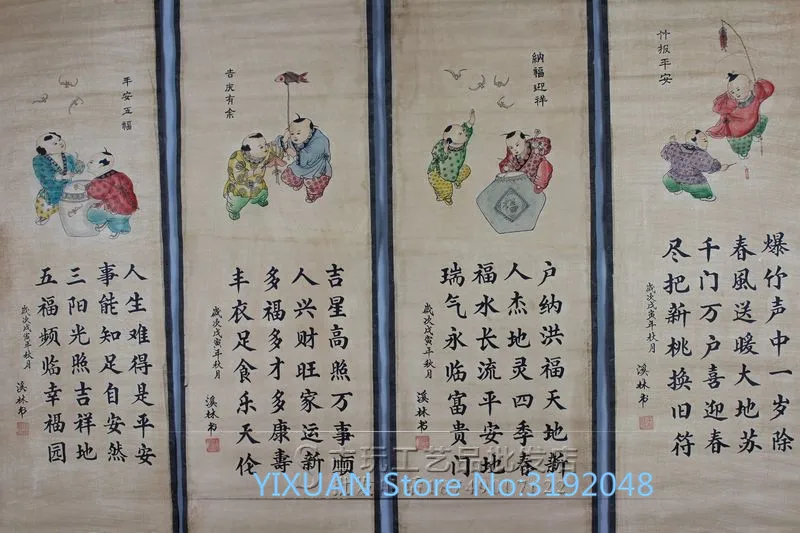 竹报平安
爆竹声中一岁除
春風送暖大地苏
千门万户喜迎春
尽把新桃换旧符
歲次戊寅年秋月
溪林书
納福迎祥
户纳洪福天地新
人杰地灵四季春
福水长流平安地
瑞气永临富贵门
歲次戊寅年秋月
溪林书
吉庆有余
吉星高照万事顺
人兴财旺家运新
多福多才多康寿
丰衣足食乐天伦
歲次戊寅年秋月
溪林书
平安五福
人生难得是平安
事能知足自安然
三阳光照吉祥地
五福频临幸福园
歲次戊寅年秋月
溪林书
古玩工艺品批发店
YIXUAN Store No:3192048